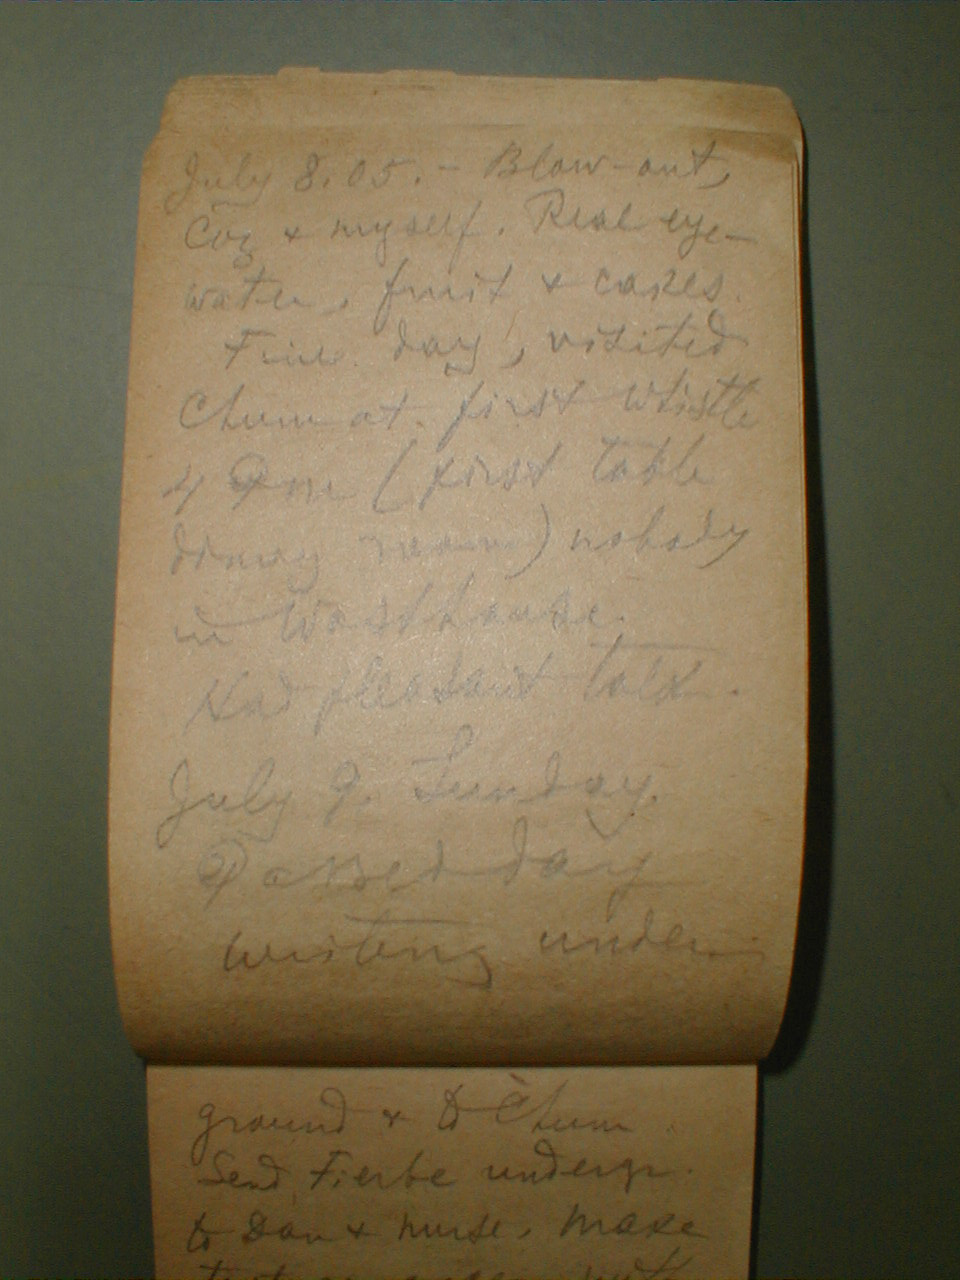 July 8.05. - Blow-out,
Coz + myself. Real eye-
water, fruit + cakes.
Fine day, visited
Chum at first whistle
4 Pm (first table
dining room) nobody
in Washhouse.
Had pleasant talk.
July 9. Sunday.
Passed day
writing under
ground + to Chum
Send Fierbe undergr.
to Dan + nurse. Make